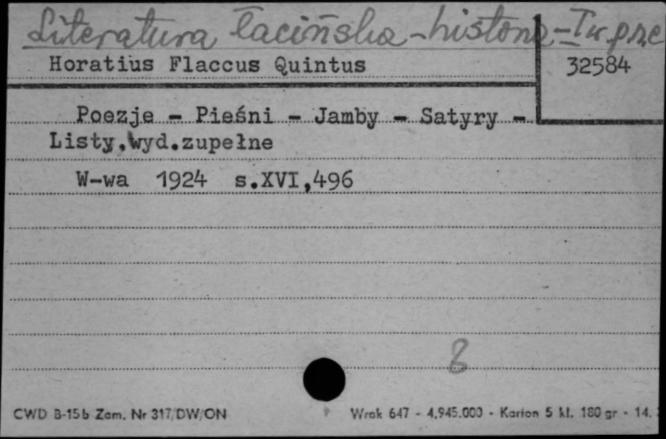 Literatura łacińska - historia - Tw.prze
Horatius Flaccus Quintus
32584
Poezje - Pieśni - Jamby - Satyry -
Listy.Wyd.zupełne
W-wa 1924 s.XVI,496
8
CWD B-15b Zam. Nr 317/DW/ON
Wrok 647 - 4.945.000 - Karton 5 kl. 180 gr - 14.